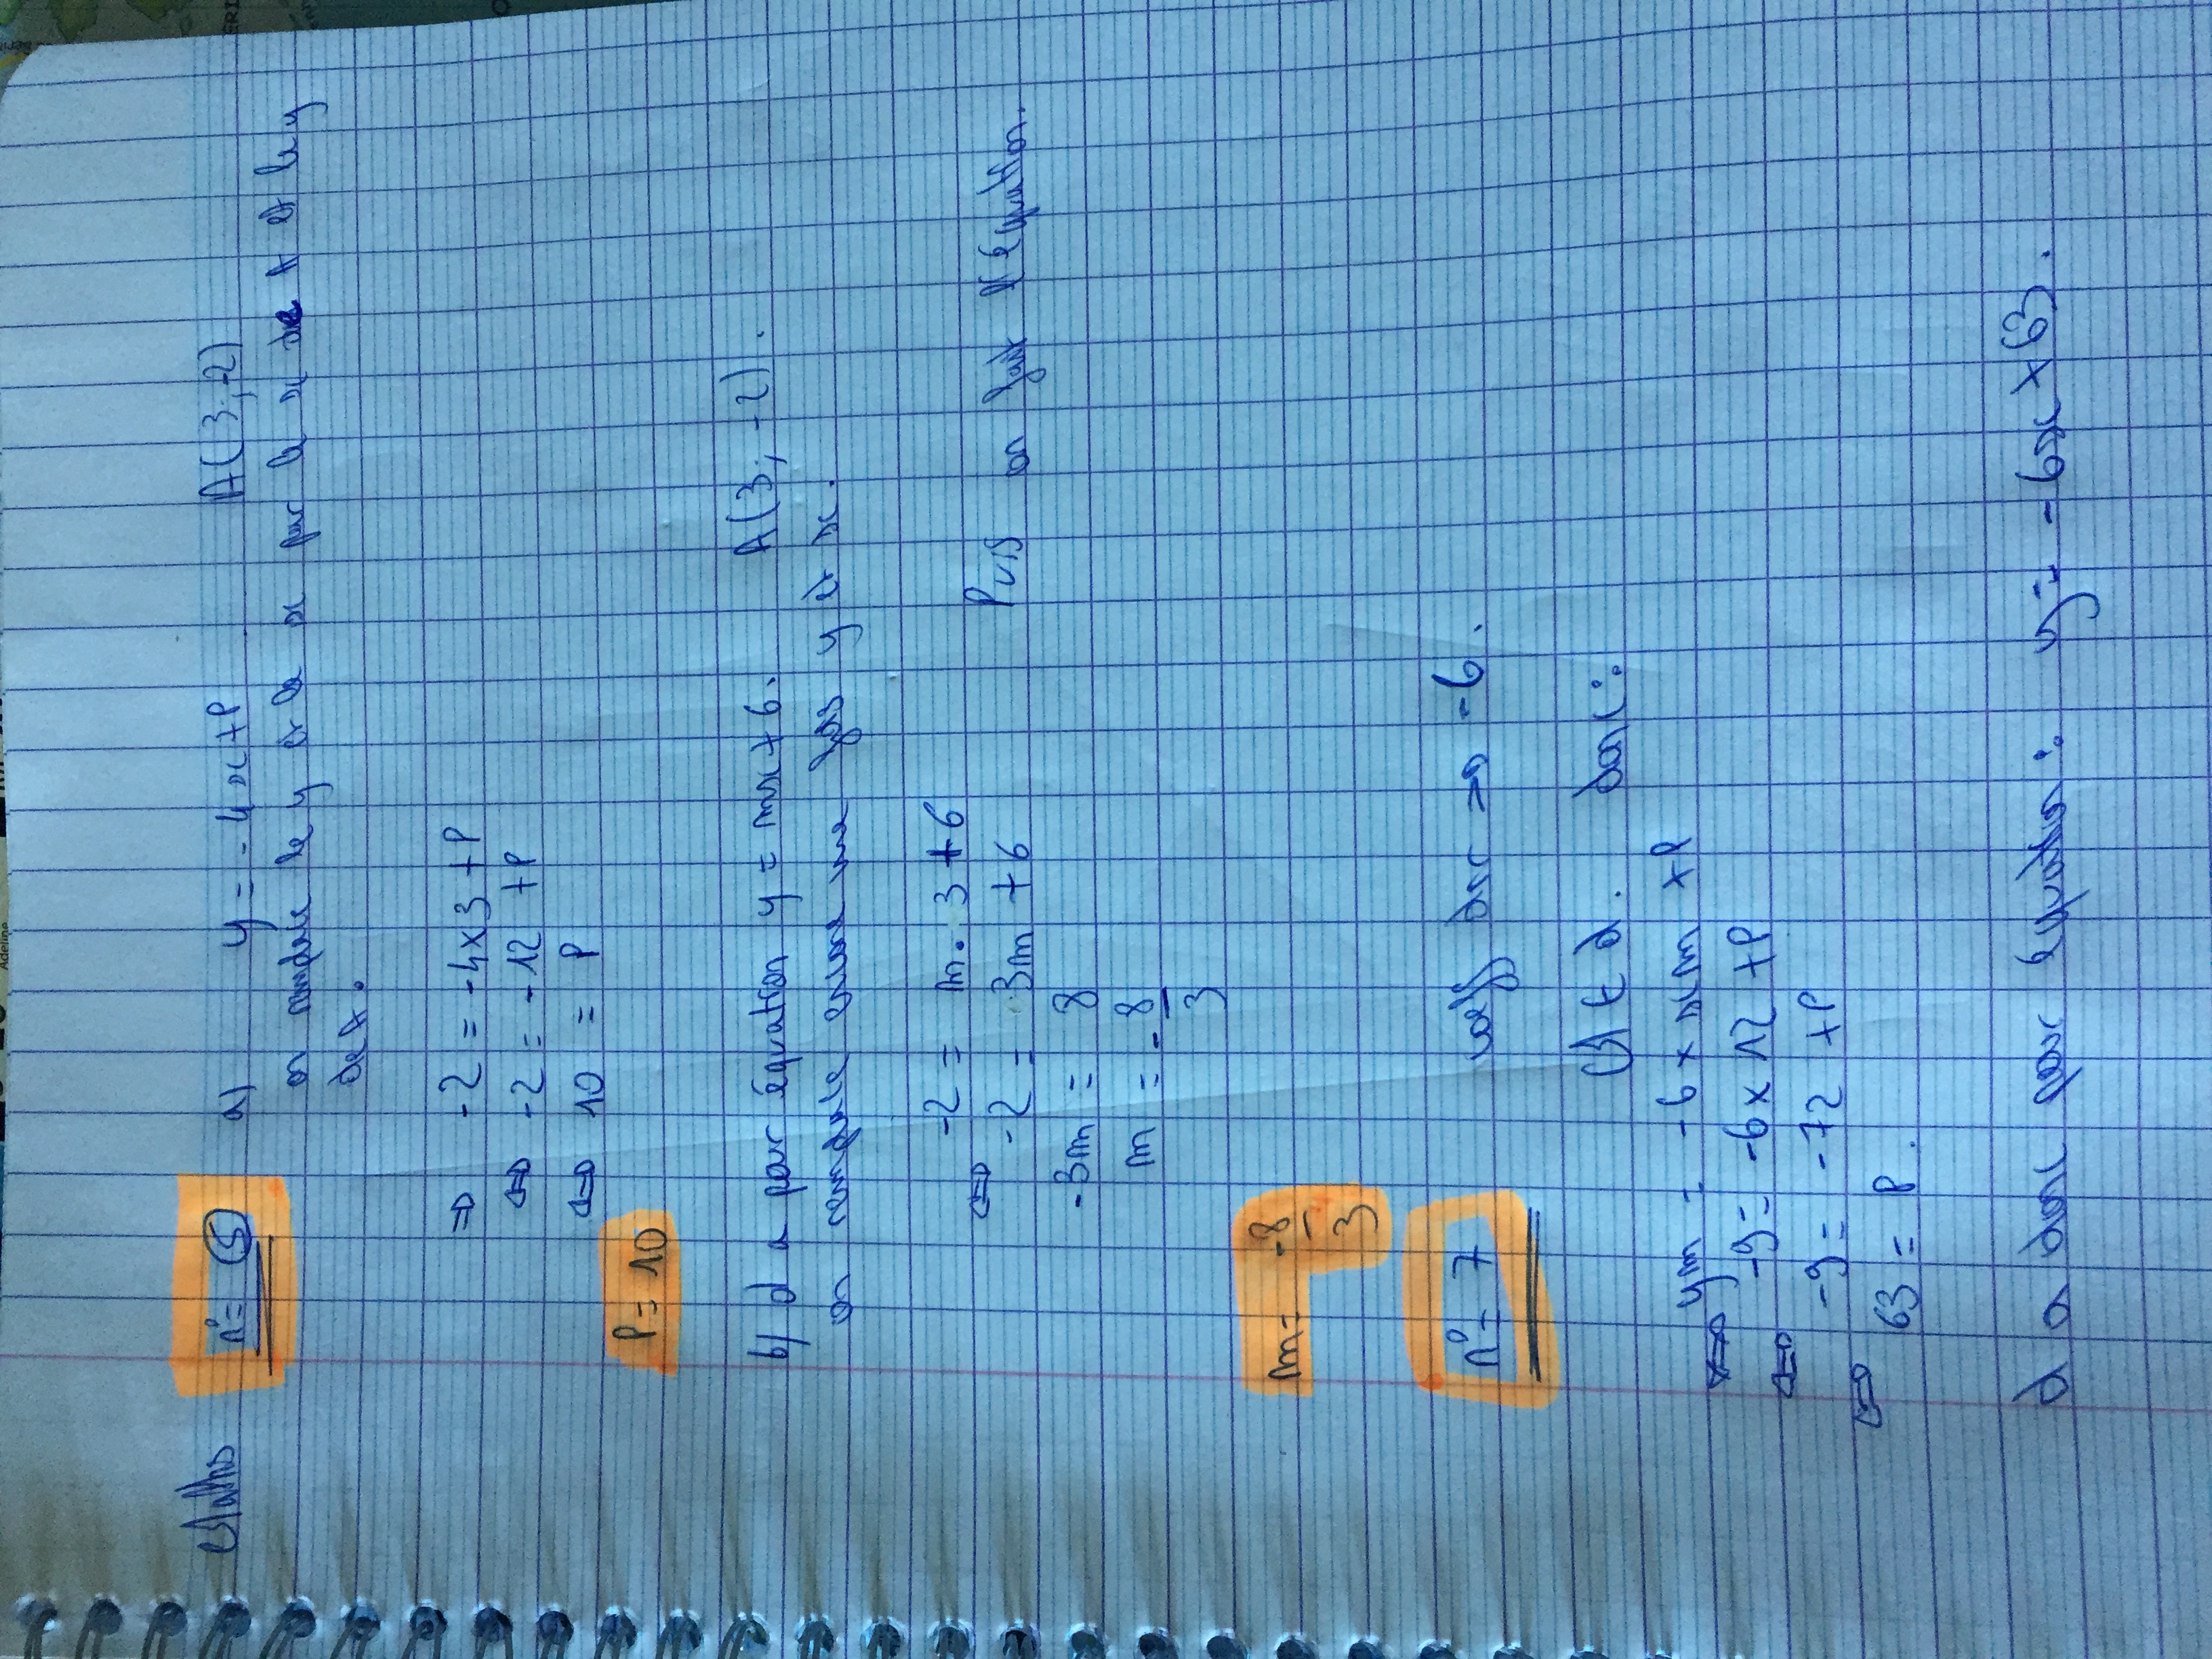 Adeline
Maths n° 5 a) y = -4x + P A(3; -2)
on remplace le y et le x par le x de A et le y
de A.
⇒ -2 = -4 x 3 + P
⇔ -2 = -12 + P
⇔ 10 = P
P = 10
b) d a pour équation y = mx + 6. A(3; -2).
on remplace encore une fois y et x.
-2 = m . 3 + 6
⇔ -2 = 3m + 6 Puis on fait l'équation.
-3m = 8
m = - 8/3
m = -8/3
n° 7 coeff dir ⇒ -6.
M ∈ d. donc :
ym = -6 x xm + P
⇔ -9 = -6 x 12 + P
⇔ -9 = -72 + P
⇔ 63 = P.
d a donc pour équation : y = -6x + 63.